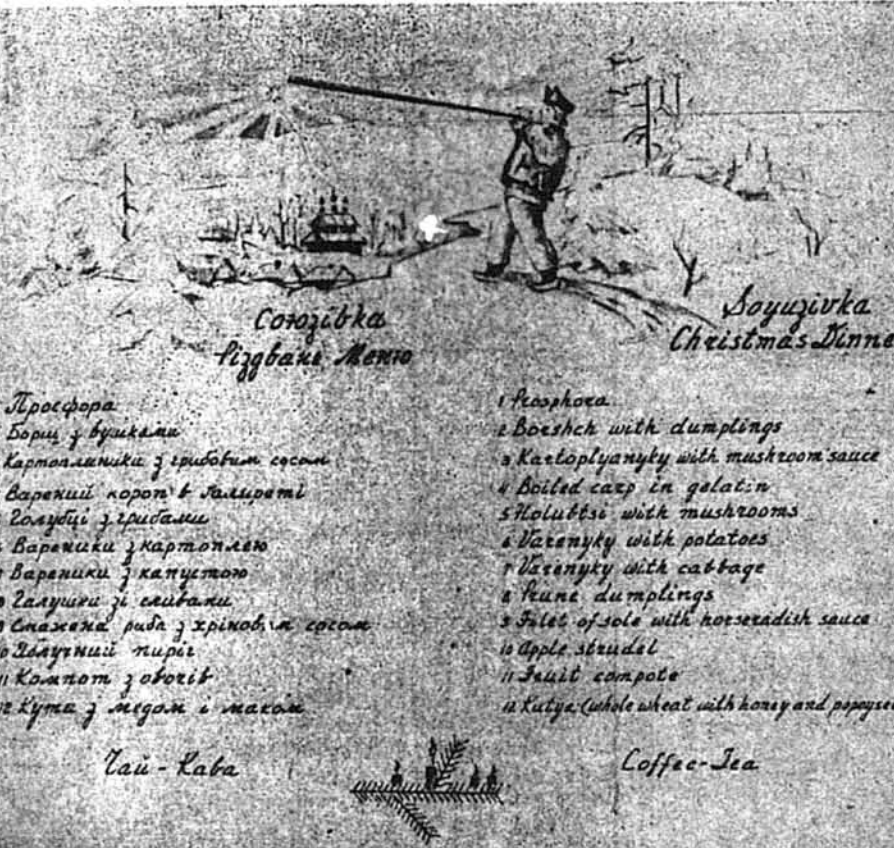 Союзівка
Різдвяне Меню
Просфора
Борщ з вушками
Картопляники з грибовим сосом
Варений короп в галяреті
Голубці з грибами
Вареники з картоплею
Вареники з капустою
Галушки зі сливами
Смажена риба з хріновим сосом
10 Яблучний пиріг
11 Компот з овочів
12 Кутя з медом і маком
Чай - Кава
Soyuzivka
Christmas Dinne
1 Prosphora
2 Borshch with dumplings
3 Kartoplyanyky with mushroom sauce
4 Boiled carp in gelatin
5 Holubtsi with mushrooms
6 Varenyky with potatoes
7 Varenyky with cabbage
8 Prune dumplings
9 Filet of sole with horseradish sauce
10 Apple strudel
11 Fruit compote
12 Kutya (whole wheat with honey and poppysee
Coffee-Tea